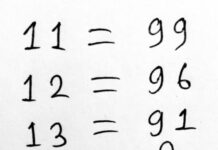 11 = 99
12 = 96
13 = 91